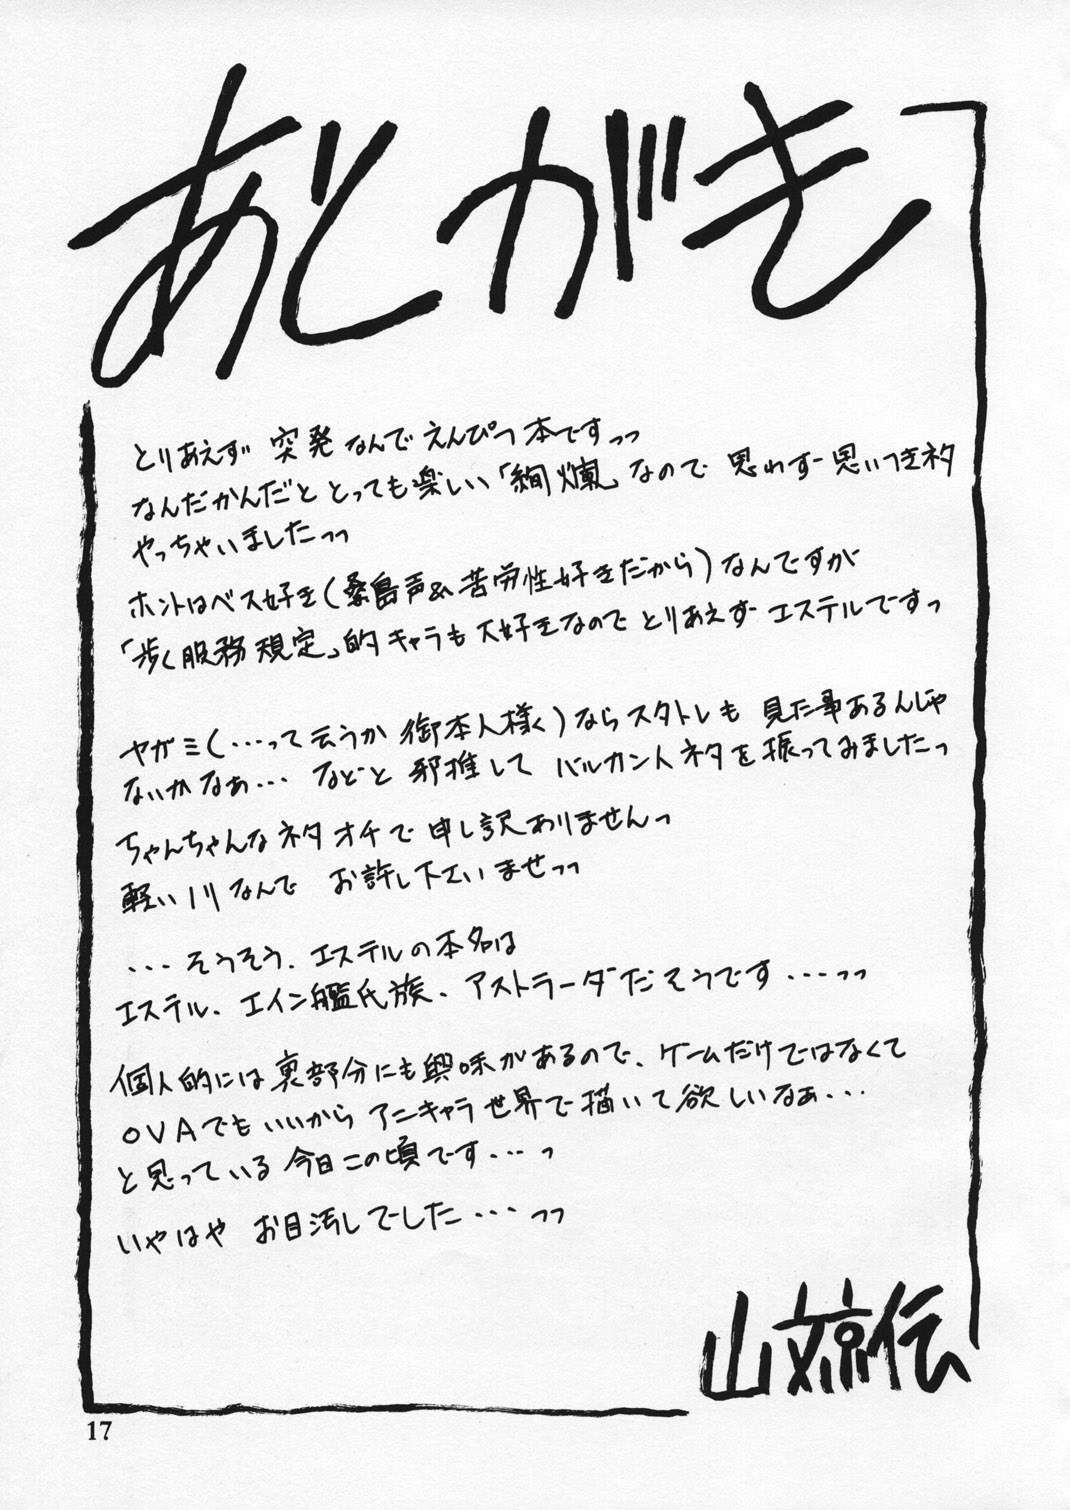 あとがき
とりあえず 突発なんで えんぴつ本ですっっ
なんだかんだと とっても楽しい「絢爛」なので 思わず 思いつきネタ
やっちゃいましたっっ
ホントはベス好き(桑島声&苦労性好きだから)なんですが
「歩く服務規定」的キャラも大好きなので とりあえず エステルですっ
ヤガミ(…って云うか 御本人様く)ならスタトレも 見た事あるんじゃ
ないかなぁ… などと 邪推して バルカン人ネタを振ってみましたっ
ちゃんちゃんなネタオチで申し訳ありませんっ
軽いノリなんで お許し下さいませっっ
…そうそう、エステルの本名は
エステル、エイン艦氏族、アストラーダだそうです…っっ
個人的には裏部分にも興味があるので、ゲームだけではなくて
OVAでもいいから アニキャラ世界で描いて欲しいなぁ…
と思っている今日この頃です…っ
いやはや お目汚しでした…っっ
山文京伝
17